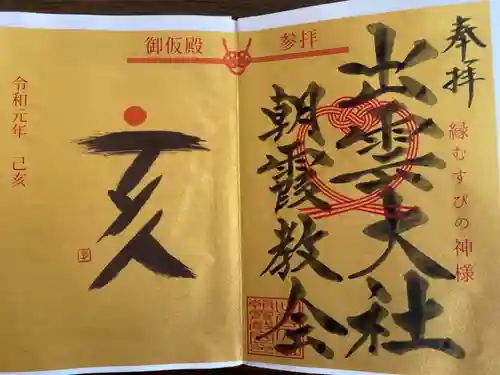 奉拝
縁むすびの神様
出雲大社
朝霞教会
御仮殿 参拝
亥
令和元年 己亥